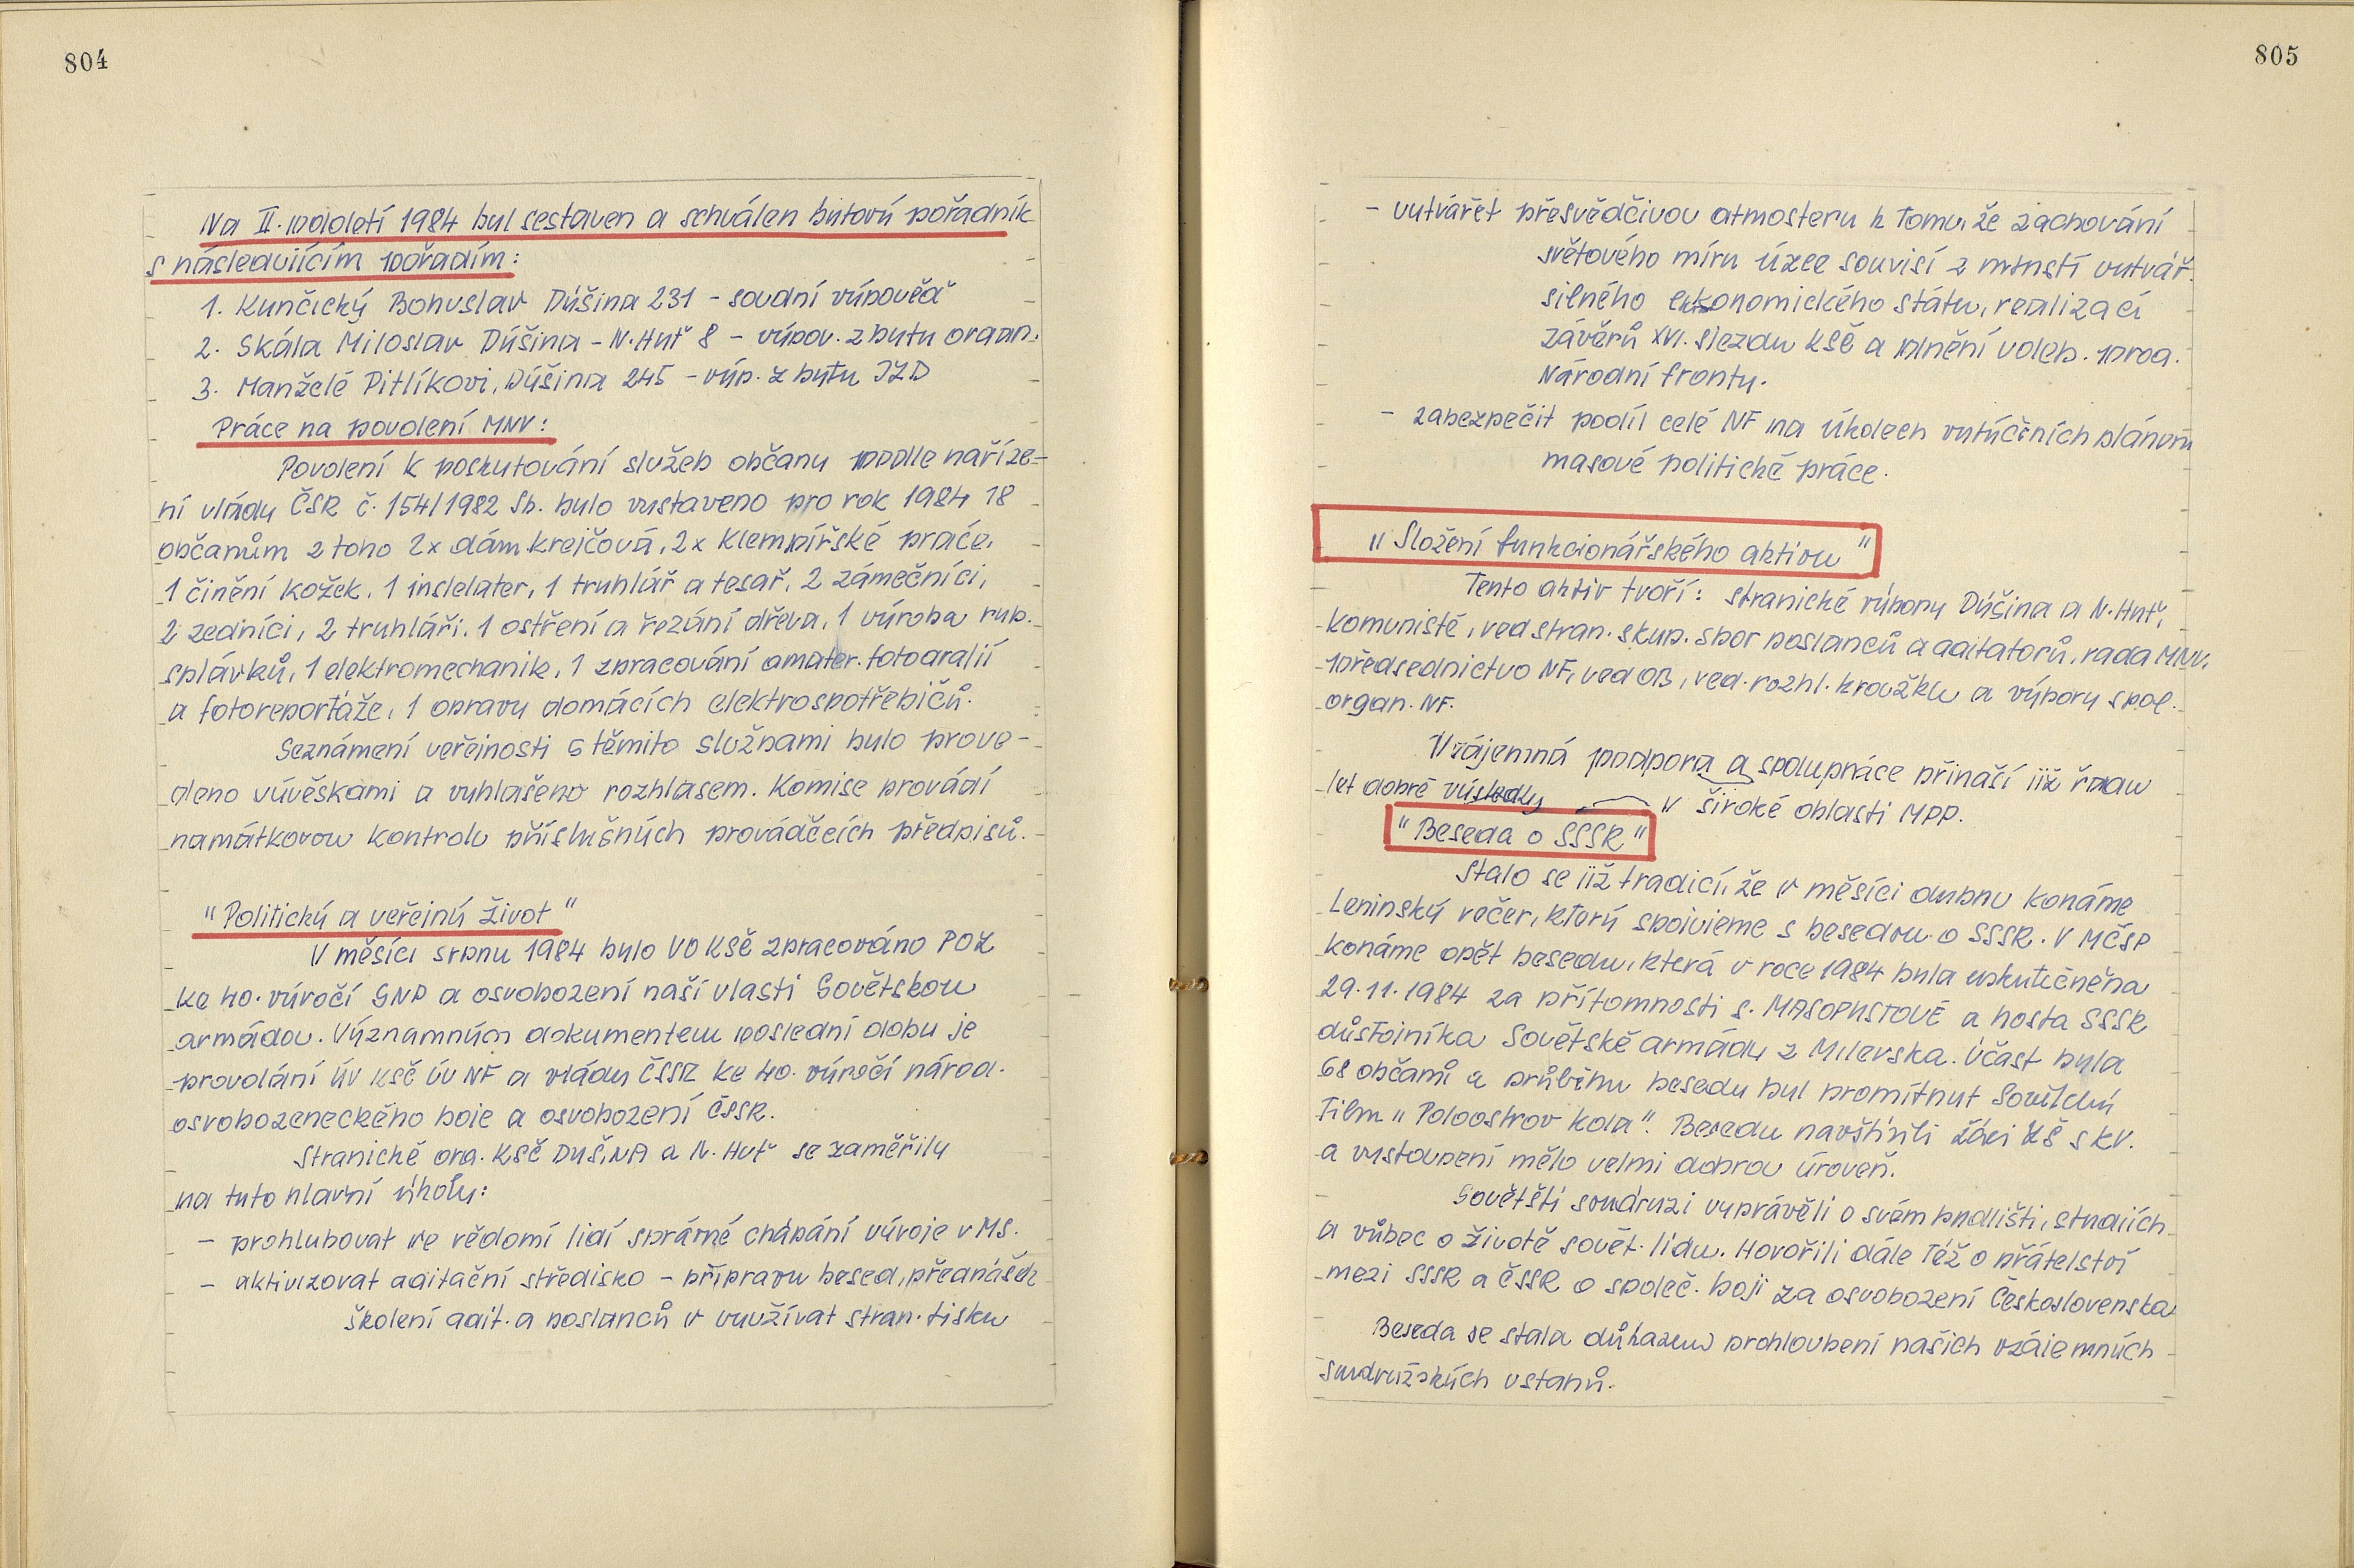 804
Na II. pololetí 1984 byl sestaven a schválen bytový pořadník
s následujícím pořadím:
1. Kunčický Bohuslav Dýšina 231 - soudní výpověď
2. Skála Miloslav Dýšina - N. Huť 8 - výpov. z bytu organ.
3. Manželé Pitlíkovi, Dýšina 245 - výp. z bytu JZD
Práce na povolení MNV:
Povolení k poskytování služeb občany podle naříze-
ní vlády ČSR č. 154/1982 Sb. bylo vystaveno pro rok 1984 18
občanům z toho 2x dám. krejčová, 2x klempířské práce,
1 činění kožek, 1 instelater, 1 truhlář a tesař, 2 zámečníci,
2 zedníci, 2 truhláři, 1 ostření a řezání dřeva, 1 výroba ryb.
splávků, 1 elektromechanik, 1 zpracování amater. fotografií
a fotoreportáže, 1 opravy domácích elektrospotřebičů.
Seznámení veřejnosti s těmito službami bylo prove-
deno vývěskami a vyhlašeno rozhlasem. Komise provádí
namátkovou kontrolu příslušných prováděcích předpisů.
"Politický a veřejný život"
V měsíci srpnu 1984 bylo VO KSČ zpracováno POZ
ke 40. výročí SNP a osvobození naší vlasti Sovětskou
armádou. Významným dokumentem poslední doby je
provolání ÚV KSČ ÚV NF a vlády ČSSR ke 40. výročí národ.
osvobozeneckého boje a osvobození ČSSR.
Stranické org. KSČ DYŠINA a N. Huť se zaměřily
na tyto hlavní úkoly:
- prohlubovat ve vědomí lidí správné chápání vývoje v MS.
- aktivizovat agitační středisko - přípravu besed, přednášek
školení agit. a poslanců v využívat stran. tisku
805
- vytvářet přesvědčivou atmosferu k tomu, že zachování
světového míru úzce souvisí z vytvář.
silného ekonomického státu, realizací
závěrů XVI. sjezdu KSČ a plnění voleb. prog.
Národní fronty.
- zabezpečit podíl celé NF na úkolech vytýčených plánem
masové politické práce.
"Složení funkcionářského aktivu"
Tento aktiv tvoří: stranické výbory Dýšina a N. Huť,
komunisté, ved stran. skup. sbor poslanců a agitatorů, rada MNV,
předsednictvo NF, ved OB, ved. rozhl. kroužku a výbory spol.
organ. NF.
Vzájemná podpora a spolupráce přináší již řadu
let dobré výsledky v široké oblasti MPP.
"Beseda o SSSR"
Stalo se již tradicí, že v měsíci dubnu konáme
Leninský večer, který spojujeme s besedou o SSSR. V MČSP
konáme opět besedu, která v roce 1984 byla uskutečněna
29.11.1984 za přítomnosti s. MASOPUSTOVÉ a hosta SSSR
důstojníka Sovětské armády z Milevska. Účast byla
68 občanů a průběhu besedy byl promítnut Sovětský
Film "Poloostrov kola". Besedu navštívili žáci ZŠ s KV.
a vystoupení mělo velmi dobrou úroveň.
Sovětští soudruzi vyprávěli o svém bydlišti, studiích
a vůbec o životě sovět. lidu. Hovořili dále též o přátelství
mezi SSSR a ČSSR o společ. boji za osvobození Československa
Beseda se stala důkazem prohloubení našich vzájemných
soudružských vstahů.